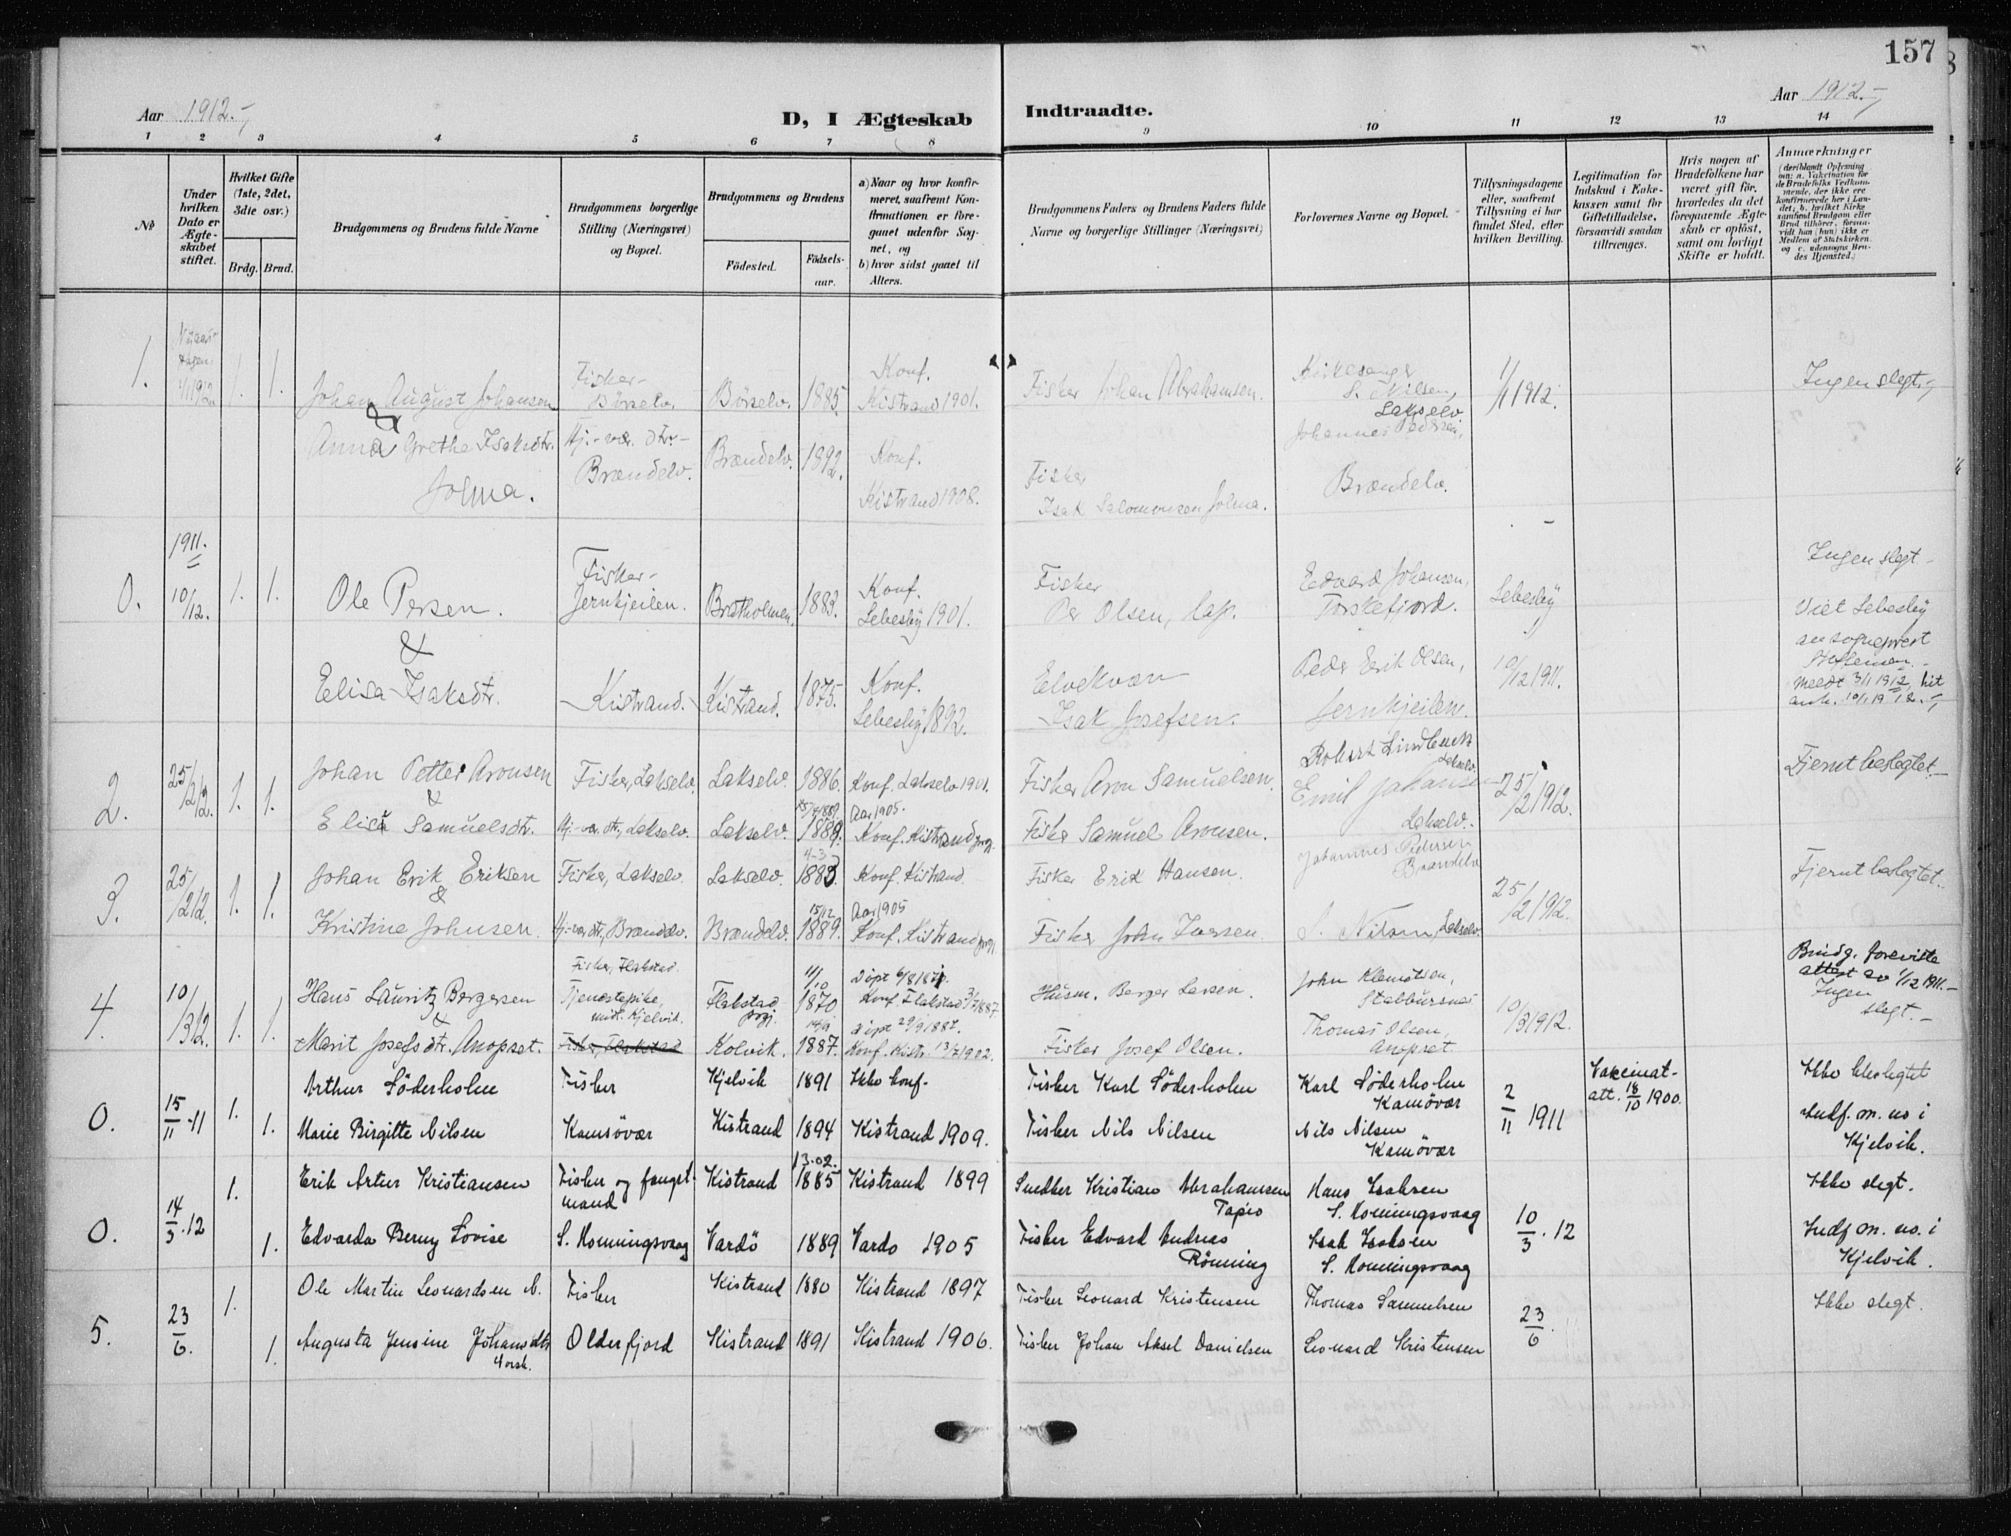 157
Aar 1912.-
D, I Ægteskab Indtraadte.
Aar 1912.-
1 2 3 4 5 6 7 8 9 10 11 12 13 14
No
Under hvilken Dato er Ægteskabet stiftet.
Hvilket Gifte (1ste, 2det, 3die osv.)
Brdg. Brud.
Brudgommens og Brudens fulde Navne
Brudgommens borgerlige Stilling (Næringsvei) og Bopæl.
Brudgommens og Brudens
Födested. Födsels-aar.
a) Naar og hvor konfirmeret, saafremt Konfirmationen er foregaaet udenfor Sognet, og
b) hvor sidst gaaet til Alters.
Brudgommens Faders og Brudens Faders fulde Navne og borgerlige Stillinger (Næringsvei)
Forlovernes Navne og Bopæl.
Tillysningsdagene eller, saafremt Tillysning ei har fundet Sted, efter hvilken Bevilling.
Legitimation for Indskud i Enkekassen samt for Giftetilladelse, forsaavidt saadan tiltrænges.
Hvis nogen af Brudefolkene har været gift för, hvorledes da det foregaaende Ægteskab er oplöst, samt om lovligt Skifte er holdt.
Anmærkninger
(deriblandt Oplysning om: a. Vakcination for de Brudefolks Vedkommende, der ikke ere konfirmerede her i Landet; b. hvilket Kirkesamfund Brudgom eller Brud tilhörer, forsaavidt han (hun) ikke er Medlem af Statskirken, og c. udensogns Brudes Hjemsted.)
1. 1/1 1912 1. 1. Johan August Johansen Fisker- Börselv. Börselv. 1885. Konf. Kistrand 1901. Fisker Johan Abrahamsen. Kirkesanger S. Nilsen, Lakselv 1/1 1912. Ingen slegt.
&
Anna Grethe Isaksdtr. Jolma. Hj.-vær. dtr- Brændelv. Brændelv. 1892. Konf. Kistrand 1908. Fisker Isak Salomonsen Jolma. Johannes Pedersen, Brændelv.
1911.
0. 10/12. 1. 1. Ole Persen. Fisker- Jernkjeilen. Bratholmen. 1883. Konf. Lebesby 1901. Fisker Per Olsen, lap. Edvard Johansen, Torskefjord. Lebesby Ingen slegt-
Viet Lebesby av sogneprest
&
Elisa Isaksdtr. Kistrand. Kistrand. 1875. Konf. Lebesby 1892. Elvekvæn Isak Josefsen. Peder Erik Olsen, Jernkjeilen. 10/12 1911. Meldt 3/1 1912, hit ank. 10/1 1912.-
2. 25/2 12. 1. 1. Johan Petter Aronsen Fisker, Lakselv. Lakselv. 1886. Konf. Lakselv 1901. Fisker Aron Samuelsen. Robert Lindbeck Lakselv. 25/2 1912. Fjernt beslegtet.-
&
Elisa Samuelsdtr. Hj.-vær. dtr, Lakselv. Lakselv. 1889. Aar 1905. Konf. Kistrand prgj. Fisker Samuel Aronsen. Emil Johansen Lakselv.-
3. 25/2 12. 1. 1. Johan Erik Eriksen Fisker, Lakselv. Lakselv. 1883. Konf. Kistrand. Fisker Erik Hansen. Johannes Pedersen Brændelv 25/2 1912. Fjernt beslegtet.-
&
Kristine Johnsen. Hj-vær dtr, Brændelv. Brændelv. 15/12 1889. Aar 1905 Konf. Kistrand prgj. Fisker John Iversen. S. Nilsen, Lakselv.
4. 10/3 12. 1. 1. Hans Lauritz Bergersen Fisker, Flakstad. Flakstad prgj. 11/10 1870 Konf. Flakstad 3/7 1887. Husm. Berger Larsen. John Klemetsen, Stabbursnes 10/3 1912. Brudg. foreviste attest av 1/12 1911.- Ingen slegt.-
&
Marit Josefsdtr. Anopset. Tjenestepike, midt. Kjelvik. Fisker, Flakstad Kolvik. 1887. Döpt 29/9 1887. Konf. Kistr. 13/7 1902. Fisker Josef Olsen. Thomas Olsen, Anopset.
0. 15/11-11 1. 1. Arthur Söderholm Fisker Kjelvik 1891 Ikke konf- Fisker Karl Söderholm Karl Söderholm Kamövær 2/11 1911 Vakcinat-att. 18/10 1900. Ikke beslegtet
Marie Birgitte Nilsen Kamsövær Kistrand 1894 Kistrand 1909. Fisker Nils Nilsen Nils Nilsen Kamövær Indf. m. no i Kjelvik.
0. 14/3.12 1. 1. Erik Artur Kristiansen Fisker og fangstmand Kistrand 13.02. 1885 Kistrand 1899 Snedker Kristian Abrahamsen Tapio Hans Isaksen S. Honningsvaag 10/3.12 Ikke slegt.
Edvarda Berny Lovise S. Honningsvaag Vardö 1889 Vardo 1905 Fisker Edvard Andreas Rönning Isak Isaksen S. Honningsvaag Indf. m. no. i Kjelvik.
5. 23/6. 1. 1. Ole Martin Leonardsen N. Fisker Kistrand 1880 Kistrand 1897 Fisker Leonard Kristensen Thomas Samuelsen 23/6. Ikke slegt.
Augusta Jensine Johansdtr Norsk. Olderfjord Kistrand 1891 Kistrand 1906. Fisker Johan Aksel Danielsen Leonard Kristensen